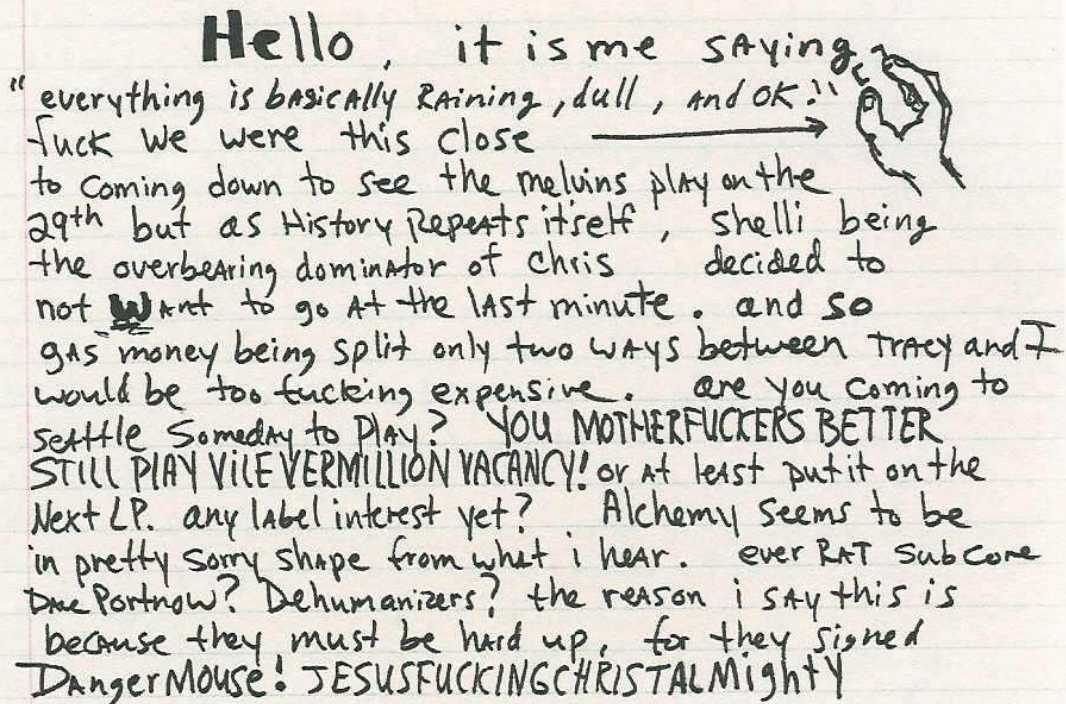 Hello, it is me saying
"everything is basically Raining, dull, and OK!"
fuck we were this close
to coming down to see the melvins play on the
29th but as History Repeats itself, shelli being
the overbearing dominator of chris decided to
not want to go at the last minute. and so
gas money being split only two ways between Tracy and I
would be too fucking expensive. are you coming to
seattle someday to Play? YOU MOTHERFUCKERS BETTER
STILL PLAY VILE VERMILLION VACANCY! or at least put it on the
Next LP. any label interest yet? Alchemy seems to be
in pretty sorry shape from what i hear. ever RAT Subcore
Dave Portnow? Dehumanizers? the reason i say this is
because they must be hard up, for they signed
Danger Mouse! JESUSFUCKINGCHRISTALMighty